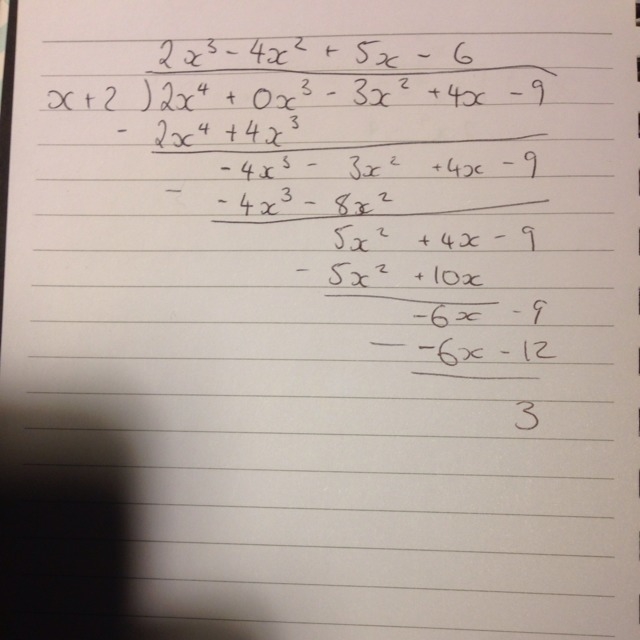 2x³ - 4x² + 5x - 6
x+2 )2x⁴ + 0x³ - 3x² +4x - 9
- 2x⁴ +4x³
-4x³ - 3x² +4x - 9
- -4x³ - 8x²
5x² +4x - 9
- 5x² +10x
-6x -9
- -6x - 12
3